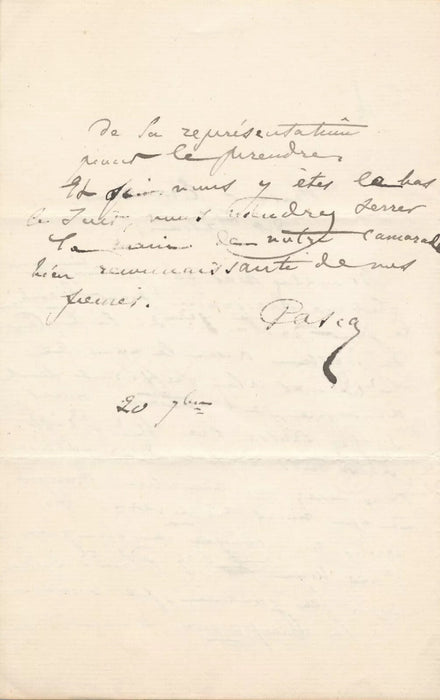 de la représentation
pour le prendre.
Et si vous y êtes là bas
le soir, vous viendrez serrer
la main de votre camarade
bien reconnaissante de vos
Pasca
20 9bre